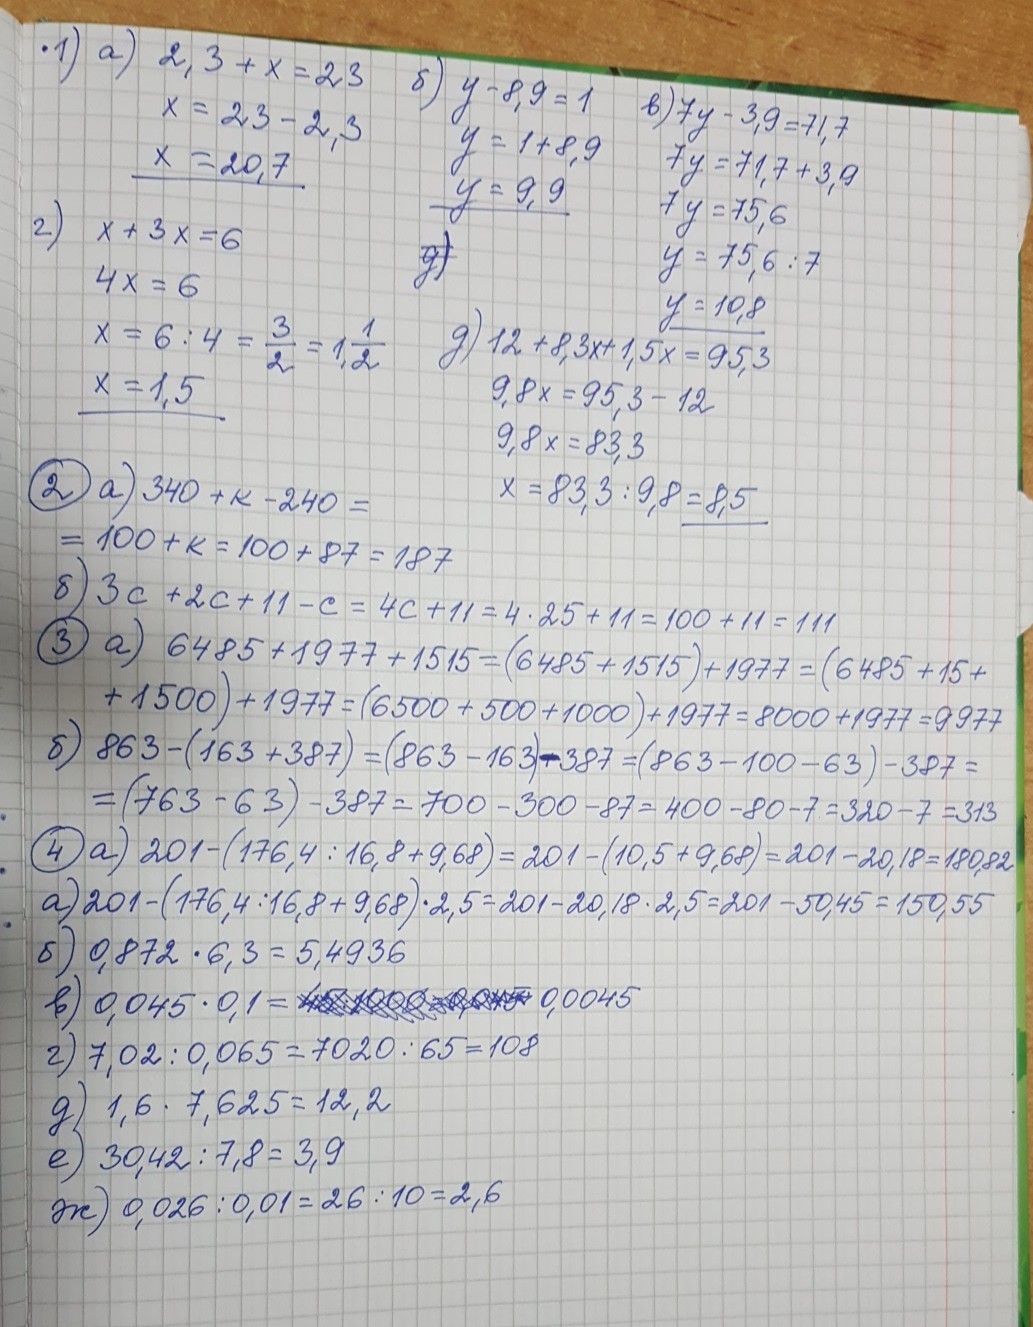 1) а) 2,3 + x = 23
x = 23 - 2,3
x = 20,7
б) y - 8,9 = 1
y = 1 + 8,9
y = 9,9
в) 7y - 3,9 = 71,7
7y = 71,7 + 3,9
7y = 75,6
y = 75,6 : 7
y = 10,8
г) x + 3x = 6
4x = 6
x = 6 : 4 = 3/2 = 1, 1/2
x = 1,5
д) 12 + 8,3x + 1,5x = 95,3
9,8x = 95,3 - 12
9,8x = 83,3
x = 83,3 : 9,8 = 8,5
2 а) 340 + к - 240 =
= 100 + к = 100 + 87 = 187
б) 3с + 2с + 11 - с = 4с + 11 = 4 · 25 + 11 = 100 + 11 = 111
3 а) 6485 + 1977 + 1515 = (6485 + 1515) + 1977 = (6485 + 15 +
+ 1500) + 1977 = (6500 + 500 + 1000) + 1977 = 8000 + 1977 = 9977
б) 863 - (163 + 387) = (863 - 163) - 387 = (863 - 100 - 63) - 387 =
= (763 - 63) - 387 = 700 - 300 - 87 = 400 - 80 - 7 = 320 - 7 = 313
4 а) 201 - (176,4 : 16,8 + 9,68) = 201 - (10,5 + 9,68) = 201 - 20,18 = 180,82
а) 201 - (176,4 : 16,8 + 9,68) · 2,5 = 201 - 20,18 · 2,5 = 201 - 50,45 = 150,55
б) 0,872 · 6,3 = 5,4936
в) 0,045 · 0,1 = 0,0045
г) 7,02 : 0,065 = 7020 : 65 = 108
д) 1,6 · 7,625 = 12,2
е) 30,42 : 7,8 = 3,9
ж) 0,026 : 0,01 = 26 : 10 = 2,6